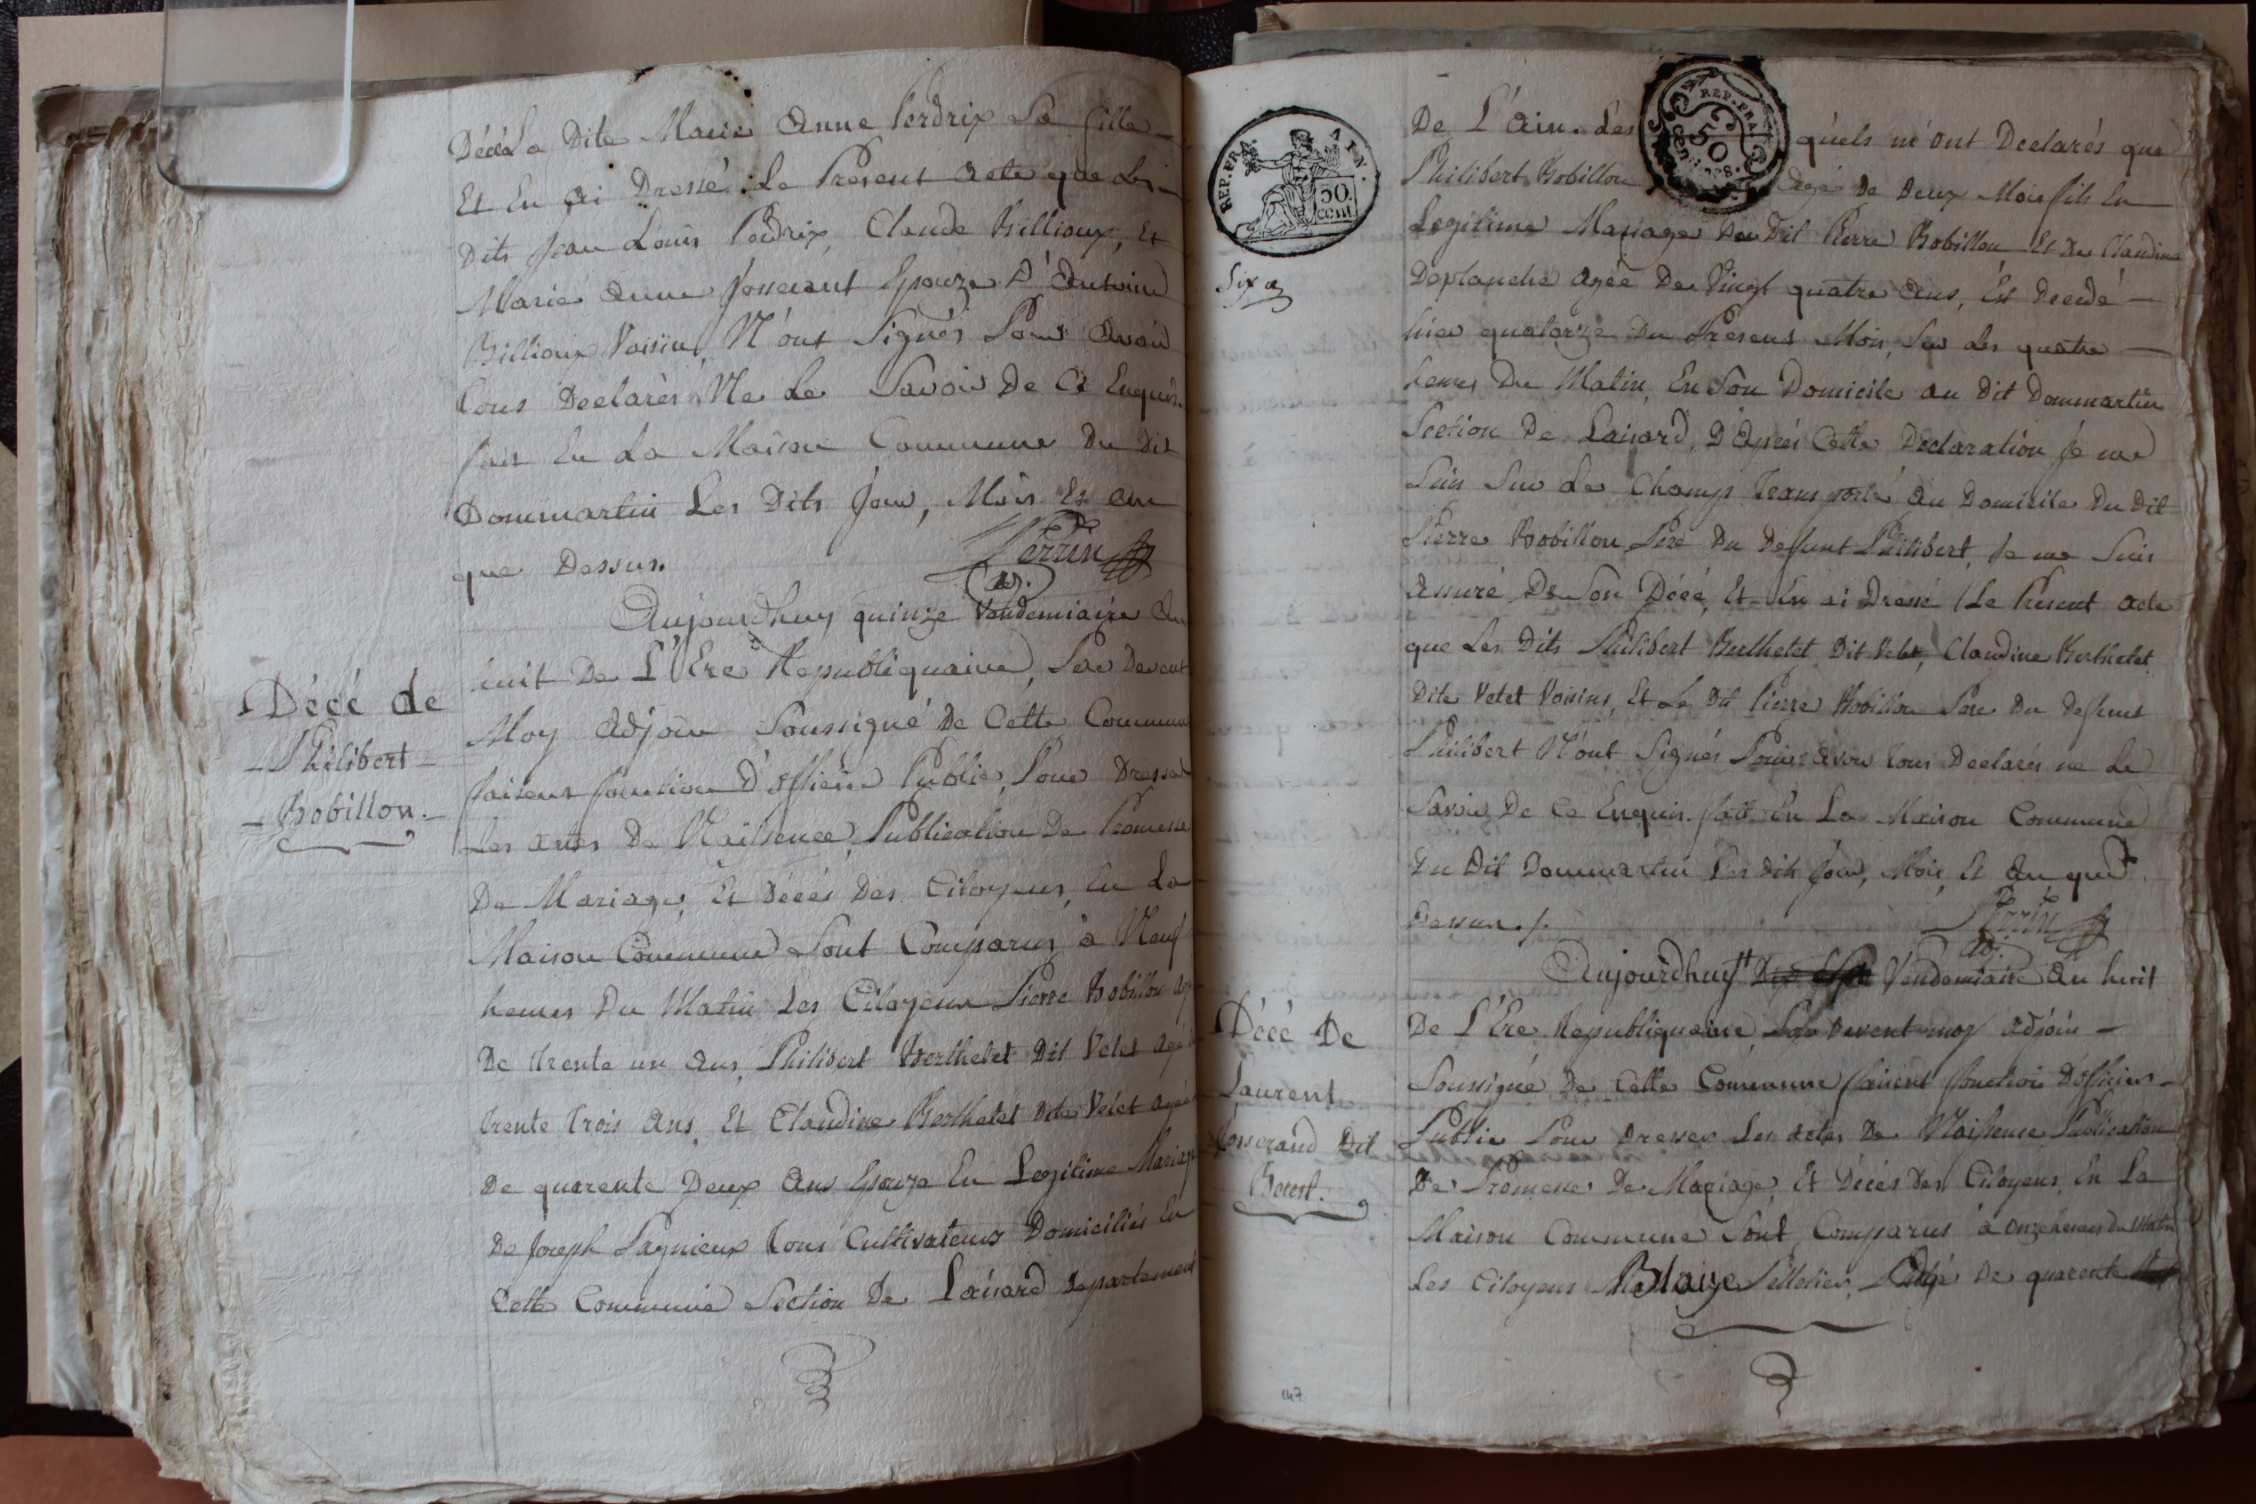 Décéla Dite Marie Anne Perdrix Sa fille
Et En ai Dressé Le Present acte que Les
Dits Jean Louis Perdrix, Claude Billioux, Et
Marie Anne Josserant Epouze D'Antoine
Billioux Voisin, N'ont Signés Pour Avoir
Tous Declarès Ne Le Savoir De Ce Enquis.
fait En La Maison Commune Du Dit
Dommartin Les Dits Jour, Mois Et An
que Dessus. Perrin
adj.
Aujourdhuy quinze Vendemiaire An
huit De L'Ere Republiquaine, Par Devent
Moy Adjoin Soussigné De Cette Commune
faisent fonction D'officier Public, Pour Dresser
Les actes De Naissence, Publication De Promesse
De Mariage, Et Décés Des Citoyens, En La
Maison Commune Sont Comparus à Neuf
heures Du Matin Les Citoyens Pierre Bobillon agé
De trente un Ans, Philibert Berthelet Dit Velet agé
trente trois Ans, Et Claudine Berthelet Dite Velet agée
De quarente Deux Ans Epouze En Legitime Mariage
De Joseph Pagnieux tous Cultivateurs Domiciliés En
Cette Commune Section De Laisard Departement
Décé de
Philibert
Bobillon.
REP. FRA.
50.
cent
Six a
REP. FRA.
50
CENT.
De L'Ain. Les quels m'ont Declarés que
Philibert Bobillon Agé De Deux Mois fils En
Legitime Mariage Du Dit Pierre Bobillon Et De Claudine
Deplanche agée De Vingt quatre Ans, Est Decedé
hier quatorze Du Present Mois, Sur Les quatre
heures Du Matin, En Son Domicile au Dit Dommartin
Section De Laisard, D'Aprés Cette Declaration Je me
Suis Sur Le Champ Transporté Au Domicile Du Dit
Pierre Bobillon Pere Du Defunt Philibert, Je me Suis
Assuré De Son Décé, Et En ai Dressé Le Present Acte
que Les Dits Philibert Berthelet Dit Velet, Claudine Berthelet
Dite Velet Voisins, Et Le Dit Pierre Bobillon Pere Du Deffunt
Philibert N'ont Signés Pour avoir tous Declarés ne Le
Savoir De Ce Enquis. fait En La Maison Commune
Du Dit Dommartin Les Dits Jour, Mois, Et An que
Dessus./. Perrin
adj.
Aujourdhuy Vendemiaire An huit
De L'Ere Republiquaine, Par Devent moy Adjoin
Soussigné De Cette Commune faisent fonction D'officier
Public Pour Dresser Les actes De Naissence Publication
De Promesse De Mariage, Et Décés Des Citoyens, En La
Maison Commune Sont Comparus à onze heures Du Matin
Les Citoyens Blaise Pelletier, Agé De quarente
Décé De
Laurent
Josserand Dit
147